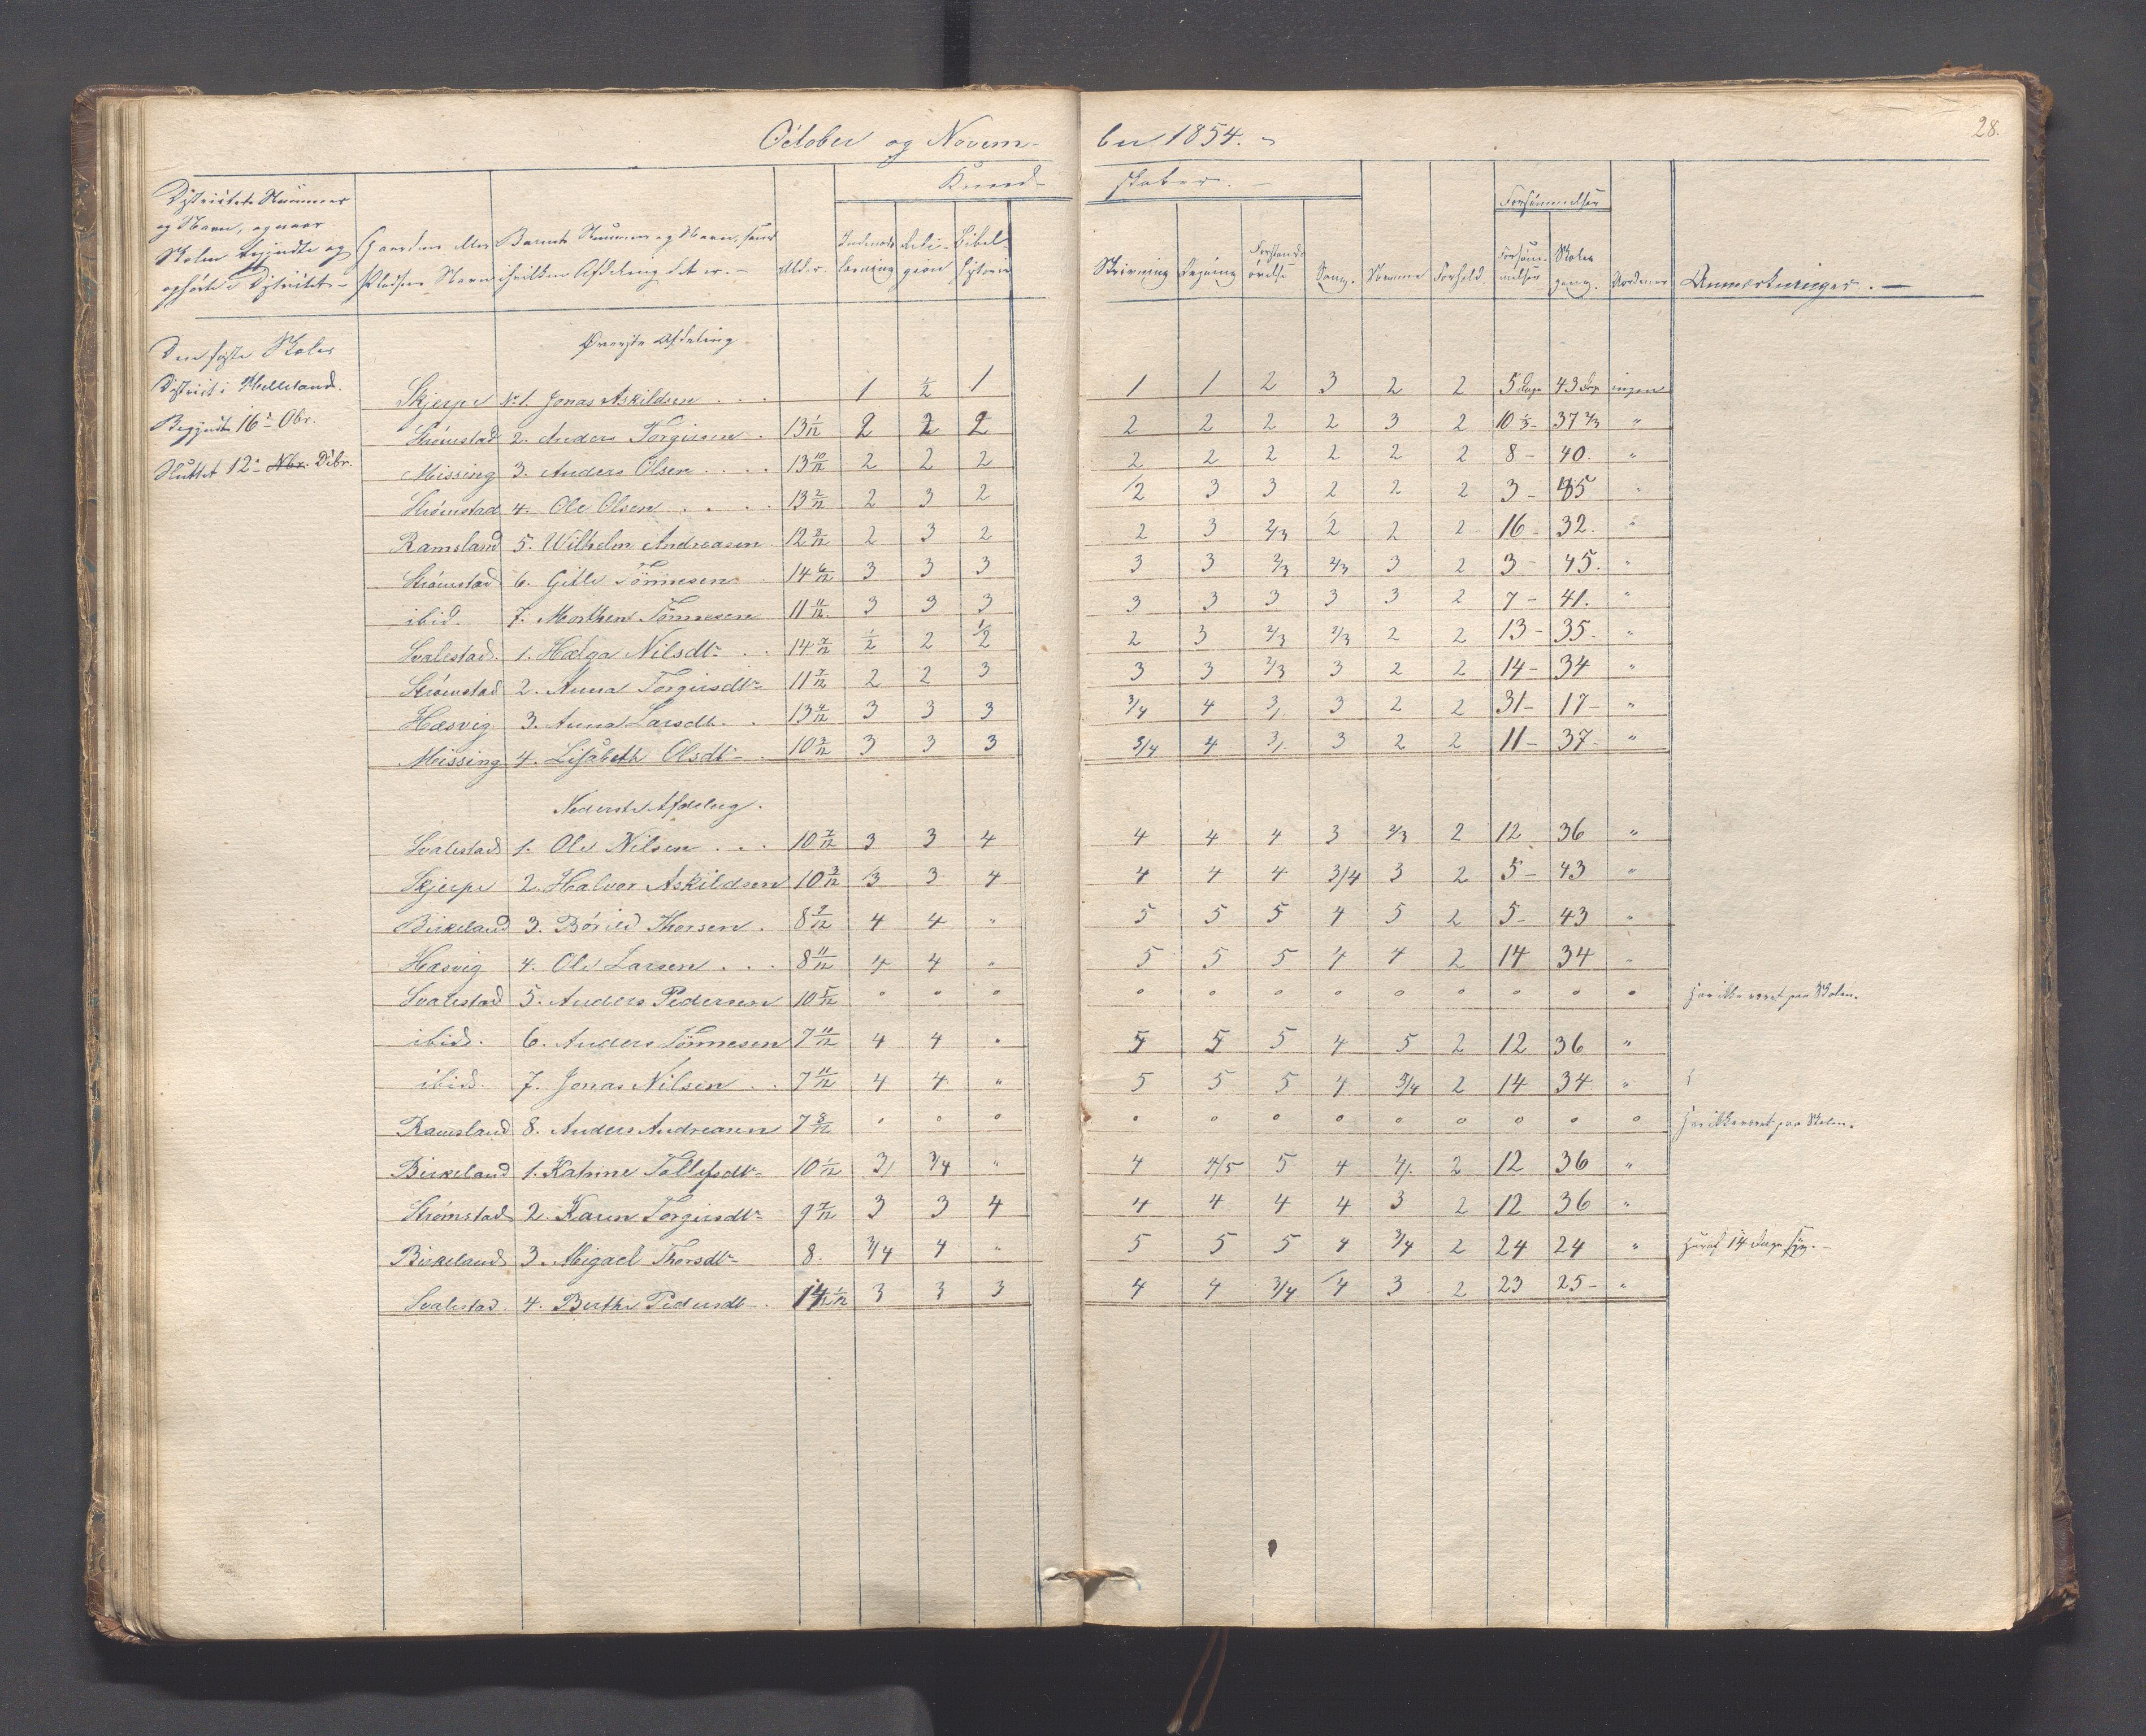 28.
October og November 1854.
Kundskaber.
Districtets Nummer og Navn, og naar Skolen begyndte og ophørte i Districtet | Gaardens eller Pladsens Navn | Barnets Nummer og Navn, samt i hvilken Afdeling det er. | Alder. | Indenadslæsning | Religion | Bibelhistorie | Skrivning | Regning | Forstandsøvelse | Sang. | Nemme | Forhold. | Forsømmelser | Forsømmelser | Skolegang. | Uordener | Anmærkninger.
Øverste Afdeling
Den første Skoles
District i Helleland.
Begyndt 16de Obr.
Sluttet 12te Nbr. Dcbr.
Skjerpe No 1. Jonas Askildsen 1 1/2 1 1 1 2 3 2 2 5 Dage 43 Dage ingen
Strømstad 2. Anders Torgersen 13 1/12 2 2 2 2 2 2 2 3 2 10 1/3 37 2/3 "
Missing 3. Anders Olsen 13 10/12 2 2 2 2 2 2 2 2 2 8 40. "
Strømstad 4. Ole Olsen 13 2/12 2 3 2 1/2 3 3 2 2 2 3 45 "
Ramsland 5. Wilhelm Andreasen 12 2/12 2 3 2 2 3 2/3 2 2 2 16 32. "
Strømstad 6. Gitle Tönnesen 14 6/12 3 3 3 3 3 2/3 2/3 3 2 3 45. "
ibid. 7. Morthen Tönnesen 11 11/12 3 3 3 3 3 3 3 3 2 7 41. "
Svalestad 1. Helga Nilsdtr 14 7/12 1/2 2 1/2 2 3 2/3 2/3 2 2 13 35. "
Strømstad 2. Anna Torgersdtr 11 7/12 2 2 3 3 3 2/3 3 2 2 14 34 "
Hæsvig 3. Anna Larsdtr. 13 4/12 3 3 3 3/4 4 3/ 3 2 2 31 17 "
Missing 4. Lisabeth Olsdtr 10 3/12 3 3 3 3/4 4 3/ 3 2 2 11 37 "
Nederste Afdeling.
Svalestad 1. Ole Nilsen 10 7/12 3 3 4 4 4 4 3 2/3 2 12 36 "
Skjerpe 2. Halvor Askildsen 10 3/12 3 3 4 4 4 4 3/4 3 2 5 43 "
Birkeland 3. Börild Thorsen 8 7/12 4 4 " 5 5 5 4 5 2 5 43 "
Hæsvig 4. Ole Larsen 8 11/12 4 4 " 5 5 5 4 4 2 14 34 "
Svalestad 5. Anders Pedersen 10 5/12 o o o o o o o o o o o o Har ikke været paa Skolen.
ibid. 6. Anders Tönnesen 7 11/12 4 4 " 5 5 5 4 5 2 12 36 "
ibid. 7. Jonas Nilsen 7 11/12 4 4 " 5 5 5 4 3/4 2 14 34 "
Ramsland 8. Anders Andreasen 7 8/12 o o o o o o o o o o o o Har ikke været paa Skolen.
Birkeland 1. Katrine Tollefsdtr 10 1/12 3/ 3/4 " 4 4/5 5 4 4/ 2 12 36 "
Strømstad 2. Karen Torgersdtr 9 7/12 3 3 4 4 4 4 4 3 2 12 36 "
Birkeland 3. Abigael Thorsdtr 8. 3/4 4 " 5 5 5 4 3/4 2 24 24 " Heraf 14 Dage syg.
Svalestad 4. Berthe Pedersdtr 14 1/12 3 3 3 4 4 3/4 4 3 2 23 25 "